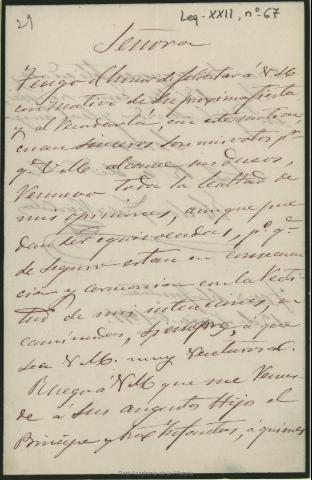 29
Leg. XXII, nº 67
Señora
Tengo el honor de felicitar á V M
con motivo de su proxima fiesta,
y al recordarla, con este motivo,
cuan sinceros son mis votos pr
qe V. M. alcance
renuevo toda la lealtad de
mis opiniones, aunque pue
dan ser equivocadas, pº qe
de seguro estan en consonan
cia y armonia con la recti
tud de mis intenciones, en
caminadas, siempre, á que
sea V. M. muy venturosa.
Ruego á V M que me recuer
de á Sus augustos Hijos el
Principe y tres Infantas, á quienes